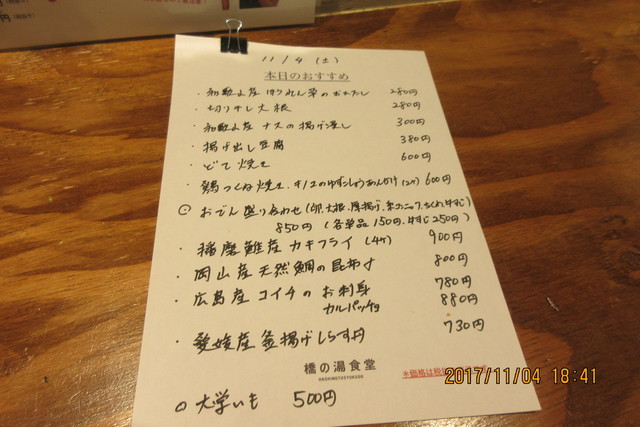 11/4 (土)
本日のおすすめ
・和歌山産 ほうれん草のおひたし 280円
・切り干し大根 280円
・和歌山産 ナスの揚げ浸し 300円
・揚げ出し豆腐 380円
・どて焼き 600円
・鶏つくね焼き、キノコのゆずしょうあんかけ(2ケ) 600円
◎ おでん盛り合わせ(卵、大根、厚揚げ、糸こんニャク、ちくわ、牛すじ)
850円 (各単品 150円、牛すじ 250円)
・播磨灘産 カキフライ(4ケ) 900円
・岡山産 天然鯛の昆布〆 800円
・広島産 コイチの お刺身 780円
カルパッチョ 880円
・愛媛産 釜揚げしらす丼 730円
橋の湯食堂
HASHINOYUSYOKUDO
※価格は税
○ 大学いも 500円
2017/11/04 18:41